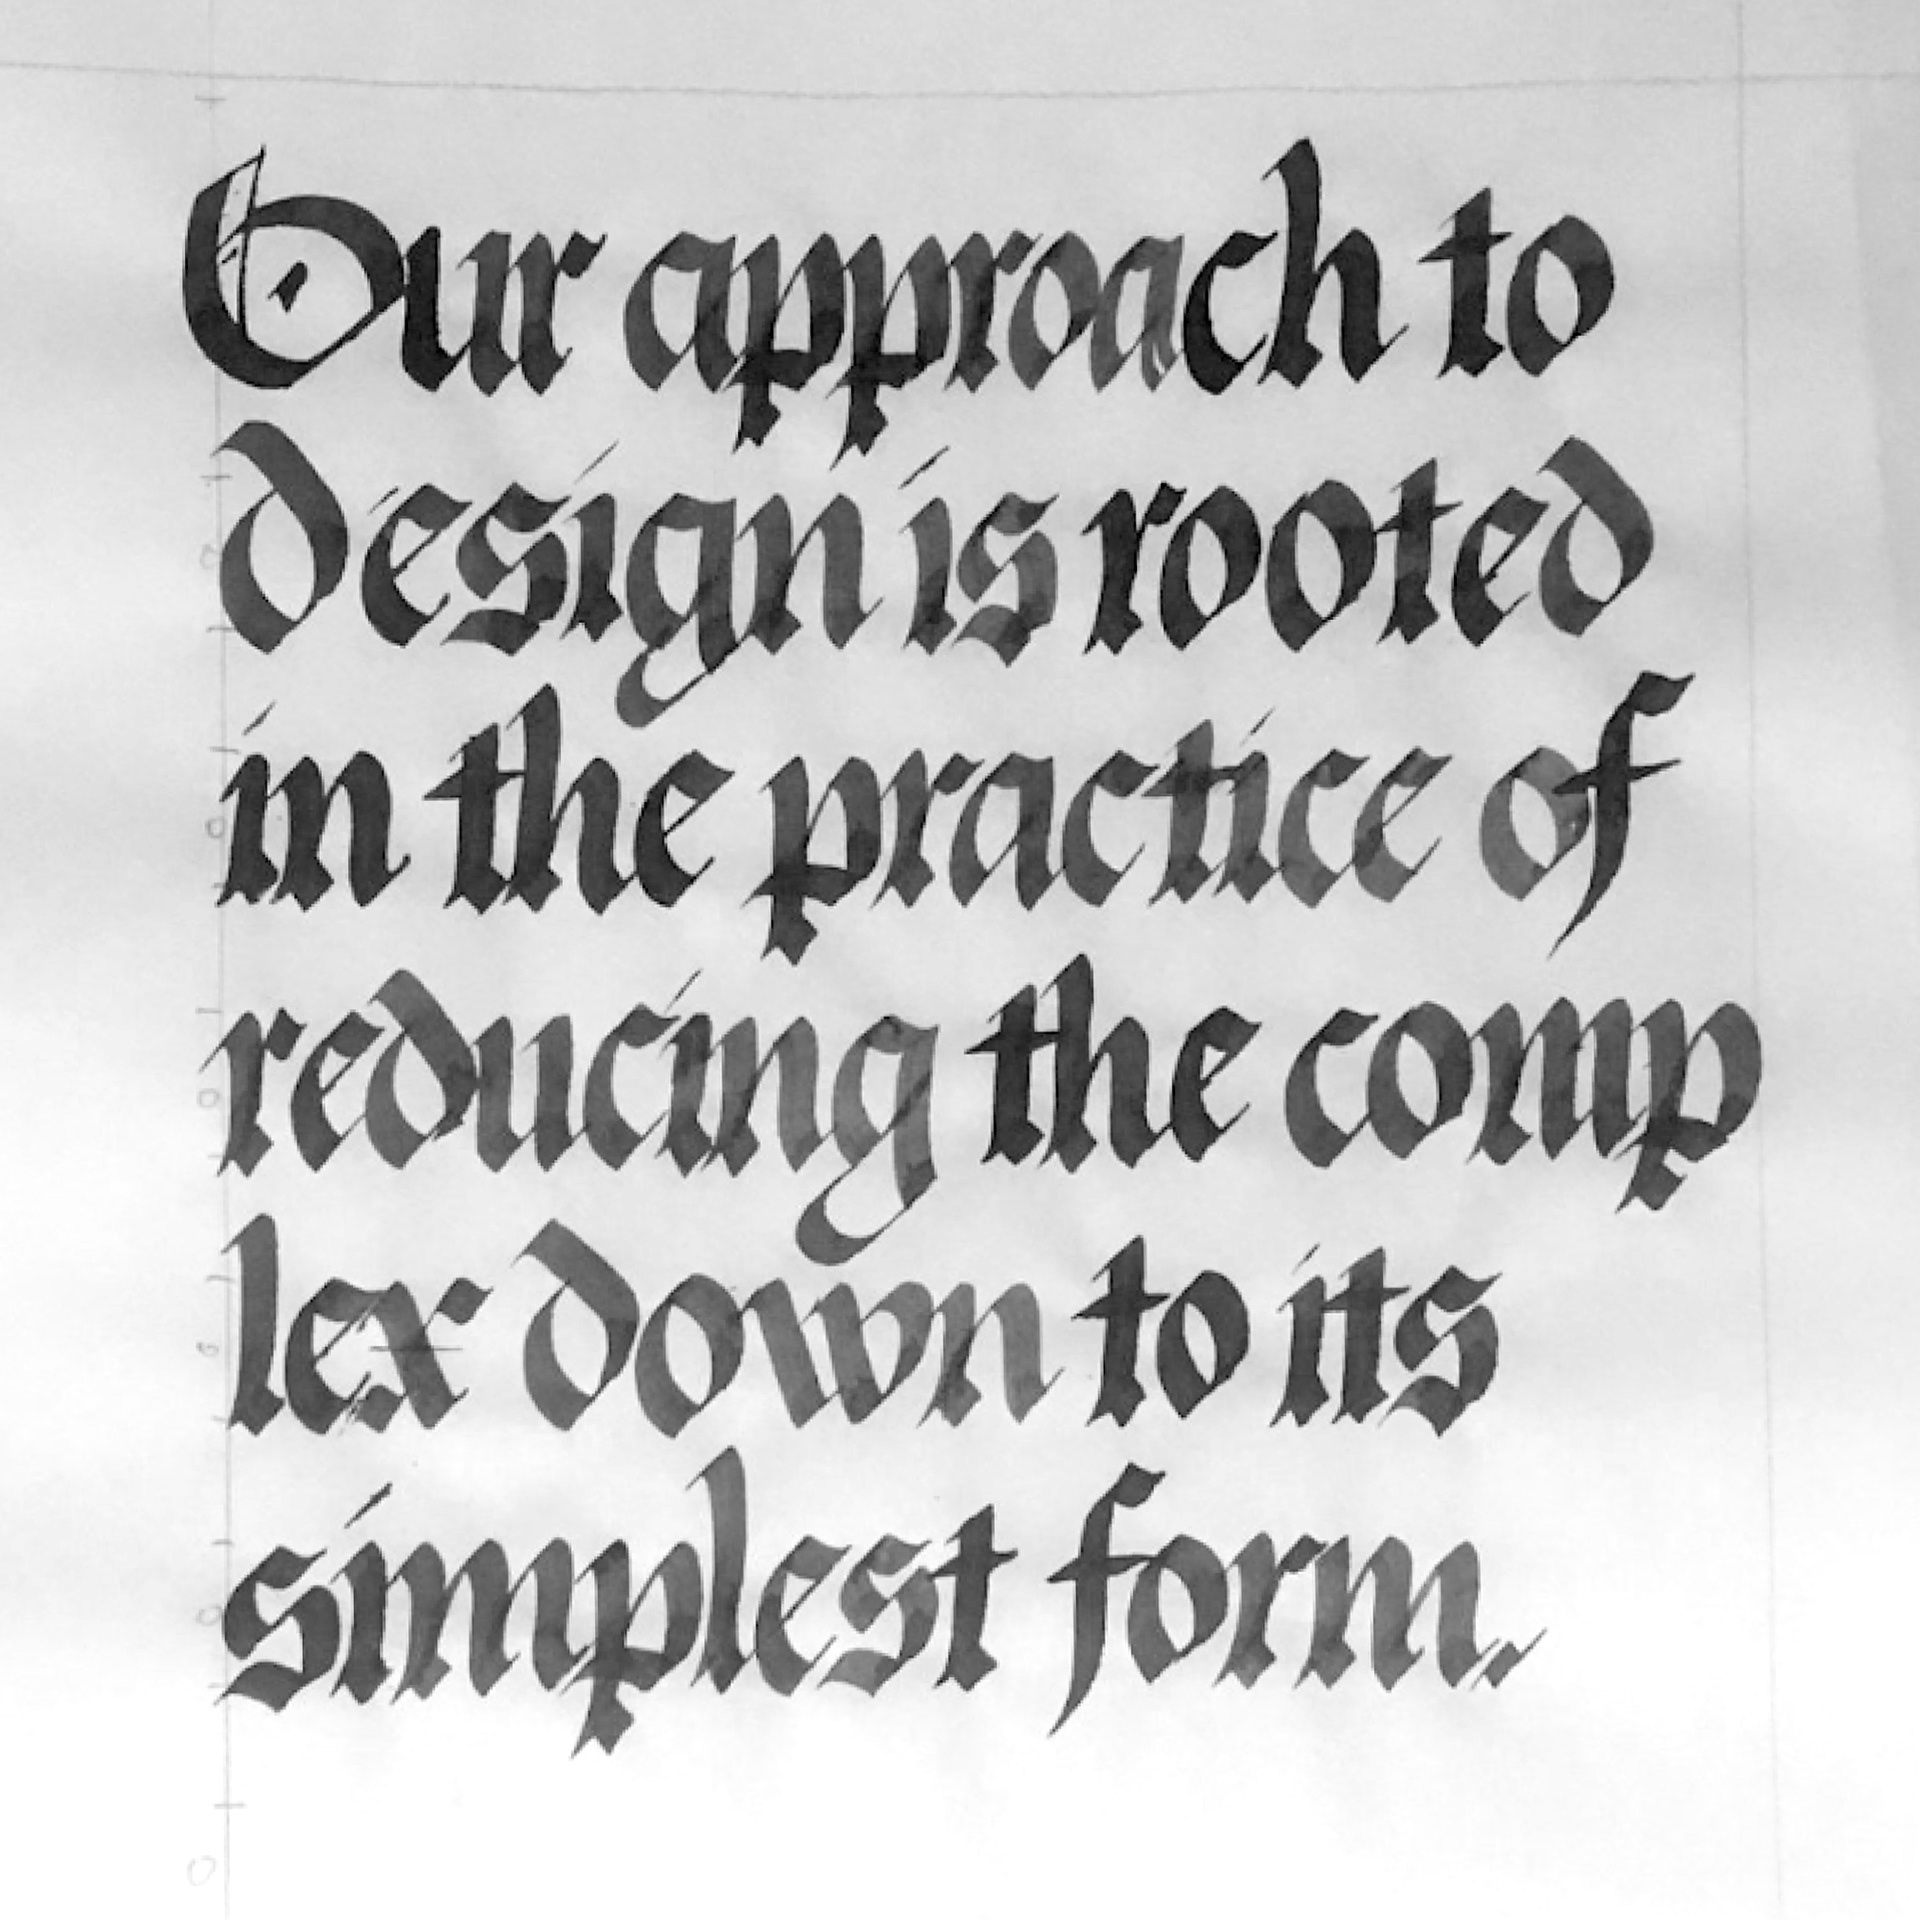 Our approach to
design is rooted
in the practice of
reducing the comp
lex down to its
simplest form.